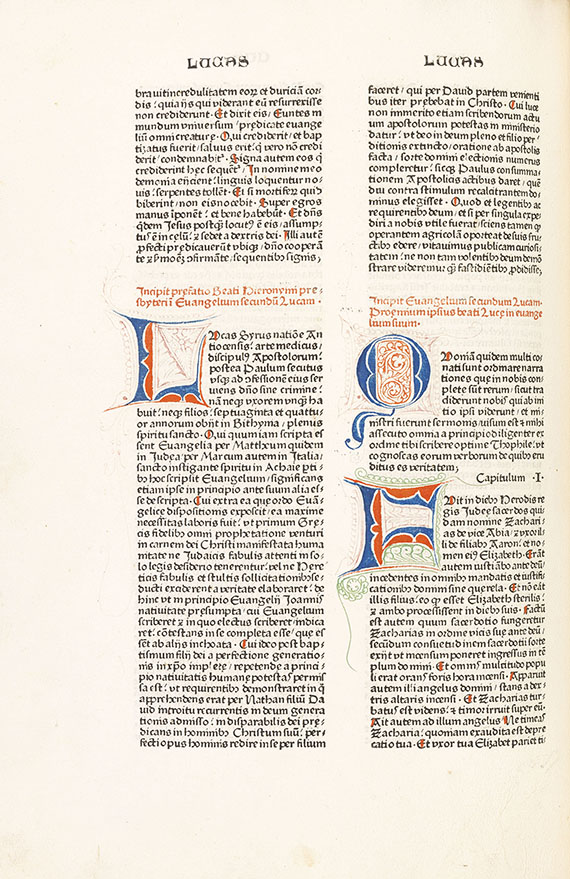 LUCAS
bravit incredulitatem eorꝝ et duriciam cor⸗
dis: quia ijs qui viderant eū resurrexisse
non crediderunt. Et dixit eis/ Euntes in
mundum universum/ predicate evange⸗
lium omni creaturę. Qui crediderit/ et bap⸗
tizatus fuerit/ salvus erit. q̄ vero nō credi
derit/ condemnabit᷑. Signa autem eos q̄
crediderint hęc sequēt᷑/ In nomine meo
demonia eijcient. linguis loquentur no⸗
vis. serpentes tollēt. Et si mortiferū quid
biberint/ non eis nocebit. Super egros
manus iponēt: et bene habebūt. Et dn̄s
qdem Jesus postq̄ locut᷒ ē eis/ assump⸗
tus ē in cęlū: ⁊ sedet a dextris dei. Illi autē
pfecti predicaverūt vbiqꝫ/ dn̄o coopera
te ⁊ ẜmonē ꝯfirmāte/ sequentibꝰ signis.
Incipit prefatio Beati Hieronymi pre⸗
sbyteri ī Evangelium secundū Lucam.
Lucas Syrus natiōe An
tiocensis: arte medicus/
discipulꝰ Apostolorum:
postea Paulum secutus
vsqꝫ ad ꝯfessionē eius ser
viens dn̄o sine crimine.
nā neqꝫ vxorem vnqꝫ ha
buit: neqꝫ filios: septuaginta et quattu⸗
or annorum obijt in Bithyma/ plenus
spiritu sancto. Qui quum iam scripta es
sent Evangelia/ per Mattheum quidem
in Judęa/ per Marcum autem in Italia:
sancto instigante spiritu in Achaie ꝑti⸗
bꝰ hoc scripsit Evangelium/ significans
etiam ipse in principio ante suum alia es
se descripta. Cui extra ea que ordo Euā⸗
gelicę dispositions exposcit/ ea maxime
necessitas laboris fuit: vt primum Gręę
cis fidelibꝰ omni prophetatione venturi
in carnem dei Christi manifestata huma
nitate ne Judaicis fabulis attenti in so⸗
lo legis desiderio tenerentur: vel ne Here
ticis fabulis et stultis sollicitationibꝰ se⸗
ducti excederent a veritate elaboraret: de
hinc vt in principio Evangelij Joannis
nativitate presumpta/ cui Evangelium
scriberet ⁊ in quo electus scriberet/ indica
ret: cōtestans in se completa esse/ que es
sēt ab alijs inchoata. Cui ideo post bap⸗
tismum filij dei a perfectione generatio⸗
nis in xp̄o implete/ repetende a princi⸗
pio nativitatis humanę potestas permis
sa est: vt requirentibꝰ demonstraret in q̄
apprehendens erat per Nathan filiū Da
vid introitu recurrentis in deum genera
tionis admisso: in disparabilis dei prę⸗
dicans in hominibꝰ Christum suū: per⸗
fecti opus hominis redire in se per filium
LUCAS
faceret/ qui per David partem venienti
bus iter prębebat in Christo. Cui lucę
non immerito etiam scribendorum actu
um apostolorum potestas in ministerio
datur: vt deo in deum pleno et filio per⸗
ditionis extincto/ oratione ab apostolis
facta/ sorte domini electionis numerus
compleretur: sicqꝫ Paulus consumma⸗
tionem Apostolicis actibus daret/ quē
diu contra stimulum recalcitrantem do⸗
minus elegisset. Quod et legentibꝰ ac
requirentibꝰ deum/ et si per singula expe⸗
diri a nobis vtile fuerat/ sciens tamen q̄
operantem agricolā oporteat de suis fru⸗
ctibꝰ edere/ vitavimus publicam curiosi⸗
tatem: ne non tam volentibꝰ deum demō
strare videremur q̄ fastidiētibꝰ ꝓdidisse.
Incipit Evangelium secundum Lucam.
Proęmium ipsius beati Lucę in evange
lium suum.
Quoniā quidem multi co⸗
nati sunt ordinare narra
tiones quę in nobis com⸗
pletę sūt rerum/ sicut tra
diderunt nobis qui ab ini
tio ipsi viderunt/ et mi⸗
nistri fuerunt sermonis/ visum est ⁊ mihi
assecuto omnia a principio diligenter ex
ordine tibi scribere optime Thophile/ vt
cognoscas eorum verborum de quibꝰ eru
ditus es veritatem.
Capitulum .I.
Fvit in diebꝰ Herodis re
gis Judeę sacerdos qui⸗
dam nomine Zachari⸗
as de vice Abia/ ⁊ vxor il
li de filiabꝰ Aaron: et no⸗
men eiꝰ Elizabeth. Erāt
autem iusti ābo ante deū/
incedentes in omnibꝰ mandatis et iustifi⸗
cationibꝰ domini sine querela. Et nō eāt
illis filius: eo qꝫ esset Elizabeth sterilis:
⁊ ambo processissent in diebꝰ suis. Factū
est autem quum sacerdotio fungeretur
Zacharias in ordine vicis suę ante deū/
secūdum consuetudinem sacerdotij sorte
exijt vt incensum poneret ingressus in tē
plum domini. Et omnis multitudo popu
li erat orans foris hora incensi. Apparuit
autem illi angelus domini/ stans a dex⸗
tris altaris incensi. Et Zacharias tur⸗
batus est videns: ⁊ timor irruit super eū.
Ait autem ad illum angelus/ Ne timeas
Zacharia: quoniam exaudita est depre
catio tua. Et vxor tua Elizabet pariet ti⸗